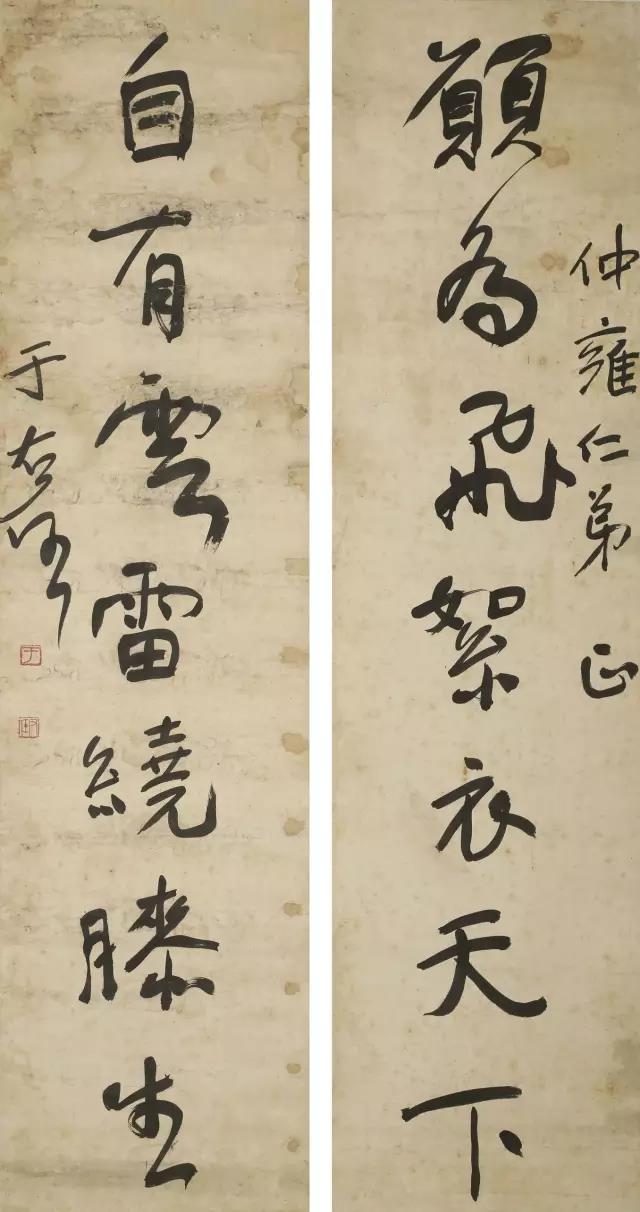 仲雍仁弟 正
願為飛絮衣天下
自有雲雷繞膝生
于右任